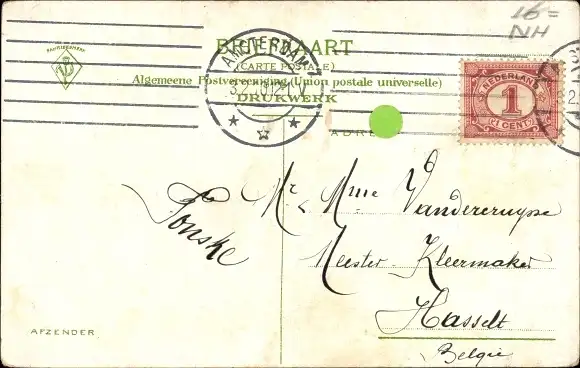 16=
NH
FABRIEKSMERK
BRIEFKAART
(CARTE POSTALE)
Algemeene Postvereeniging (Union postale universelle)
DRUKWERK
AMSTERDAM
NEDERLAND
1
(1 CENT)
Tonske
Mr Mme Vandercruysse
Meester Kleermaker
Hasselt
België
AFZENDER